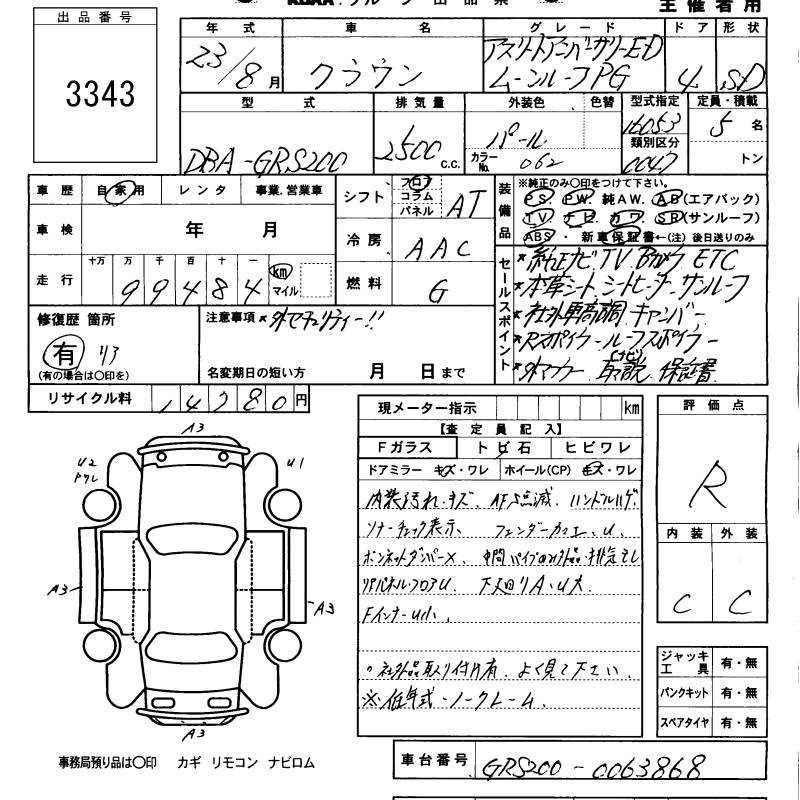 KUAA.グループ 出品票
主催者用
出品番号
3343
年式 車名 グレード ドア 形状
23/8月 クラウン アスリートアニバーサリーE-D
ムーンルーフPG 4 SD
型式 排気量 外装色 色替 型式指定 定員・積載
DBA-GRS200 2500 c.c. パール 16053 5名
カラーNo. 062 類別区分 0047 トン
車歴 自家用 レンタ 事業.営業車
シフト フロア コラム パネル AT
装備品 ※純正のみ〇印をつけて下さい。
PS PW 純AW. AB(エアバッグ)
TV ナビ カワ SR(サンルーフ)
ABS・新車保証書←(注)後日送りのみ
車検 年 月
冷房 AAC
走行 十万 万 千 百 十 一
99484 km マイル
燃料 G
セールスポイント
*純正ナビ TV Bカメラ ETC
*本革シート シートヒーター サンルーフ
*社外車高調 キャンバー
*Rスポイラー ルーフスポイラー
*外マフラー (ナビ)取説 保証書
修復歴 箇所
有 リア
(有の場合は〇印を)
注意事項 *外セキュリティー!!
名変期日の短い方 月 日まで
リサイクル料 14780円
現メーター指示 km
【査定員記入】
Fガラス トビ石 ヒビワレ
ドアミラー キズ・ワレ ホイール(CP) キズ・ワレ
内装汚れ・キズ AFS点滅 ハンドルハゲ
ソナーチェック表示、フェンダーカエ、U、
ボンネットダンパー×、中間パイプのみ外品・排気もレ
リアパネル・フロアU 下廻りA、U大
FインナーU小、
社外品取り付け有、よく見て下さい。
※低年式・ノークレーム。
評価点
R
内装 外装
C C
ジャッキ工具 有・無
パンクキット 有・無
スペアタイヤ 有・無
A3
U2
U1
A3
A3
A3
事務局預り品は〇印 カギ リモコン ナビロム
車台番号 GRS200-0063868